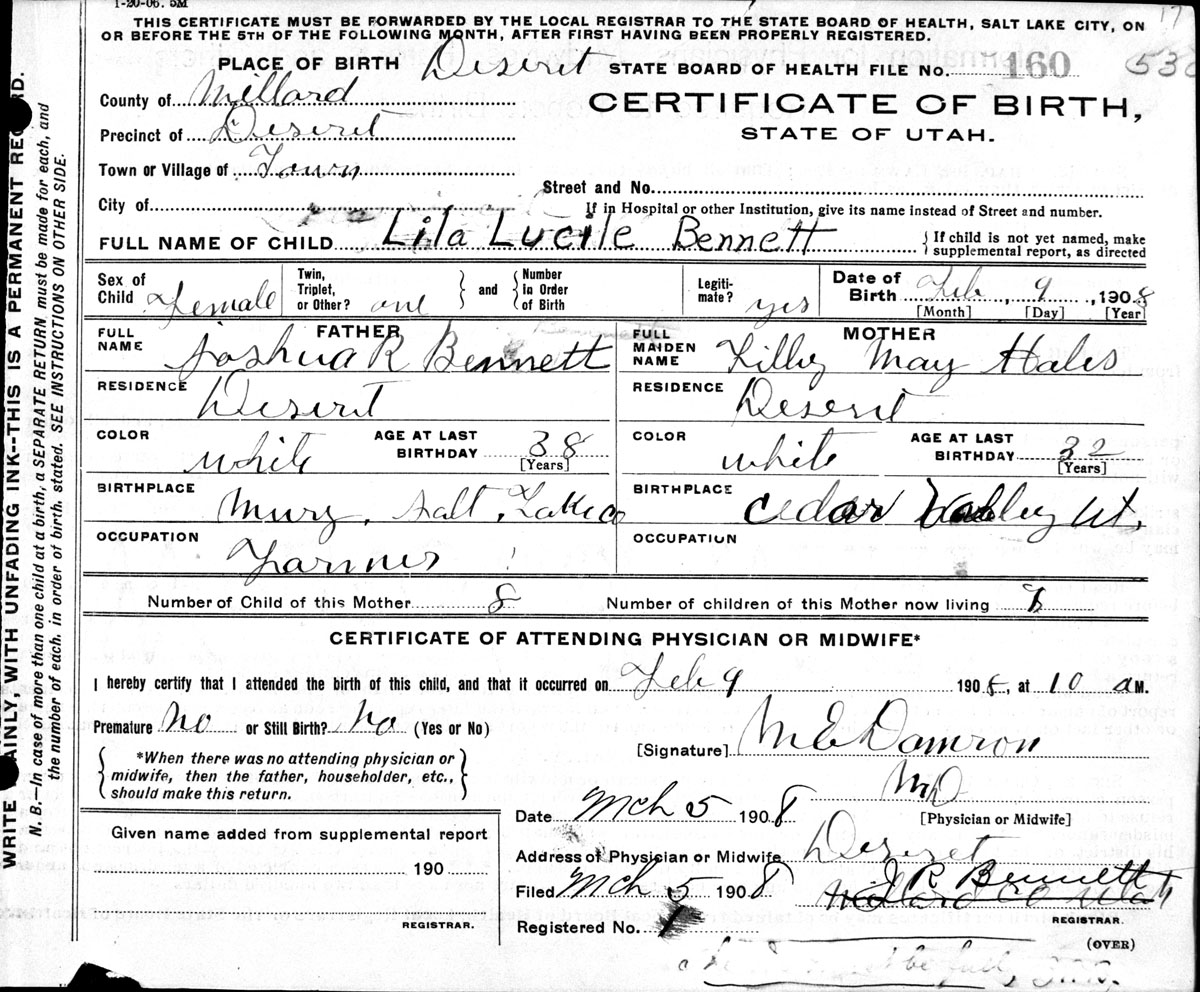 1-20-06. 5M
17
THIS CERTIFICATE MUST BE FORWARDED BY THE LOCAL REGISTRAR TO THE STATE BOARD OF HEALTH, SALT LAKE CITY, ON
OR BEFORE THE 5TH OF THE FOLLOWING MONTH, AFTER FIRST HAVING BEEN PROPERLY REGISTERED.
PLACE OF BIRTH Deseret STATE BOARD OF HEALTH FILE No. 160
County of Millard
CERTIFICATE OF BIRTH,
Precinct of Deseret
STATE OF UTAH.
Town or Village of Town
Street and No.
City of
If in Hospital or other Institution, give its name instead of Street and number.
FULL NAME OF CHILD Lila Lucile Bennett { If child is not yet named, make
supplemental report, as directed
Sex of Child Female Twin, Triplet, or Other? one } and { Number In Order of Birth Legiti-mate? yes Date of Birth Feb, 9, 1908
[Month] [Day] [Year]
FATHER MOTHER
FULL NAME Joshua R Bennett FULL MAIDEN NAME Lilly May Hales
RESIDENCE Deserit RESIDENCE Deserit
COLOR white AGE AT LAST BIRTHDAY 38 [Years] COLOR white AGE AT LAST BIRTHDAY 32 [Years]
BIRTHPLACE Mury, Salt Lake co BIRTHPLACE Cedar Valley Ut.
OCCUPATION Farmer OCCUPATION
Number of Child of this Mother 8 Number of children of this Mother now living 8
CERTIFICATE OF ATTENDING PHYSICIAN OR MIDWIFE*
I hereby certify that I attended the birth of this child, and that it occurred on Feb 9 1908, at 10 a M.
Premature No or Still Birth? No (Yes or No)
[Signature] M E Damron
{ *When there was no attending physician or
midwife, then the father, householder, etc.,
should make this return. }
MD
Date Mch 5 1908 [Physician or Midwife]
Given name added from supplemental report
Address of Physician or Midwife Deseret
190
Filed Mch 5 1908 J R Bennett
Millard Co Utah
REGISTRAR.
Registered No. 1 REGISTRAR.
(OVER)
WRITE PLAINLY WITH UNFADING INK--THIS IS A PERMANENT RECORD.
N. B.—In case of more than one child at a birth, a SEPARATE RETURN must be made for each, and
the number of each, in order of birth, stated. SEE INSTRUCTIONS ON OTHER SIDE.